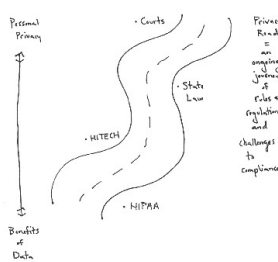 Personal
Privacy
Benefits
of
Data
• Courts
• State
Law
• HITECH
• HIPAA
Privacy
Road
=
an
ongoing
journey
of
rules +
regulations
and
challenges
to
compliance